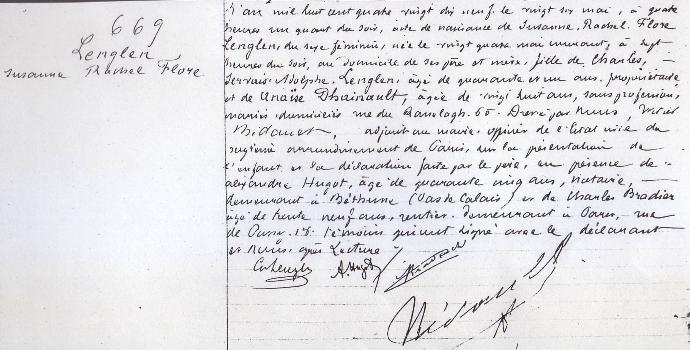 669
Lenglen
Suzanne Rachel Flore
L'an mil huit cent quatre vingt dix neuf le vingt six mai, à quatre
heures un quart du soir, acte de naissance de Suzanne, Rachel, Flore
Lenglen, du sexe féminin, née le vingt quatre mai courant, à sept
heures du soir, au domicile de ses père et mère, fille de Charles,
Gervais Adolphe Lenglen, âgé de quarante et un ans, propriétaire
et de Anaïse Dhainault, âgée de vingt huit ans, sans profession,
mariés, domiciliés rue du Ranelagh. 60. Dressé par nous,
Bidault, adjoint au maire, officier de l'état civil du
seizième arrondissement de Paris, sur la présentation de
l'enfant et la déclaration faite par le père, en présence de
Alexandre Hugot, âgé de quarante cinq ans, notaire,
demeurant à Béthune (Pas de Calais) et de Charles Bradier
âgé de trente neuf ans, rentier, demeurant à Paris, rue
de 15. témoins qui ont signé avec le déclarant
et nous, après lecture
C Lenglen A. Hugot